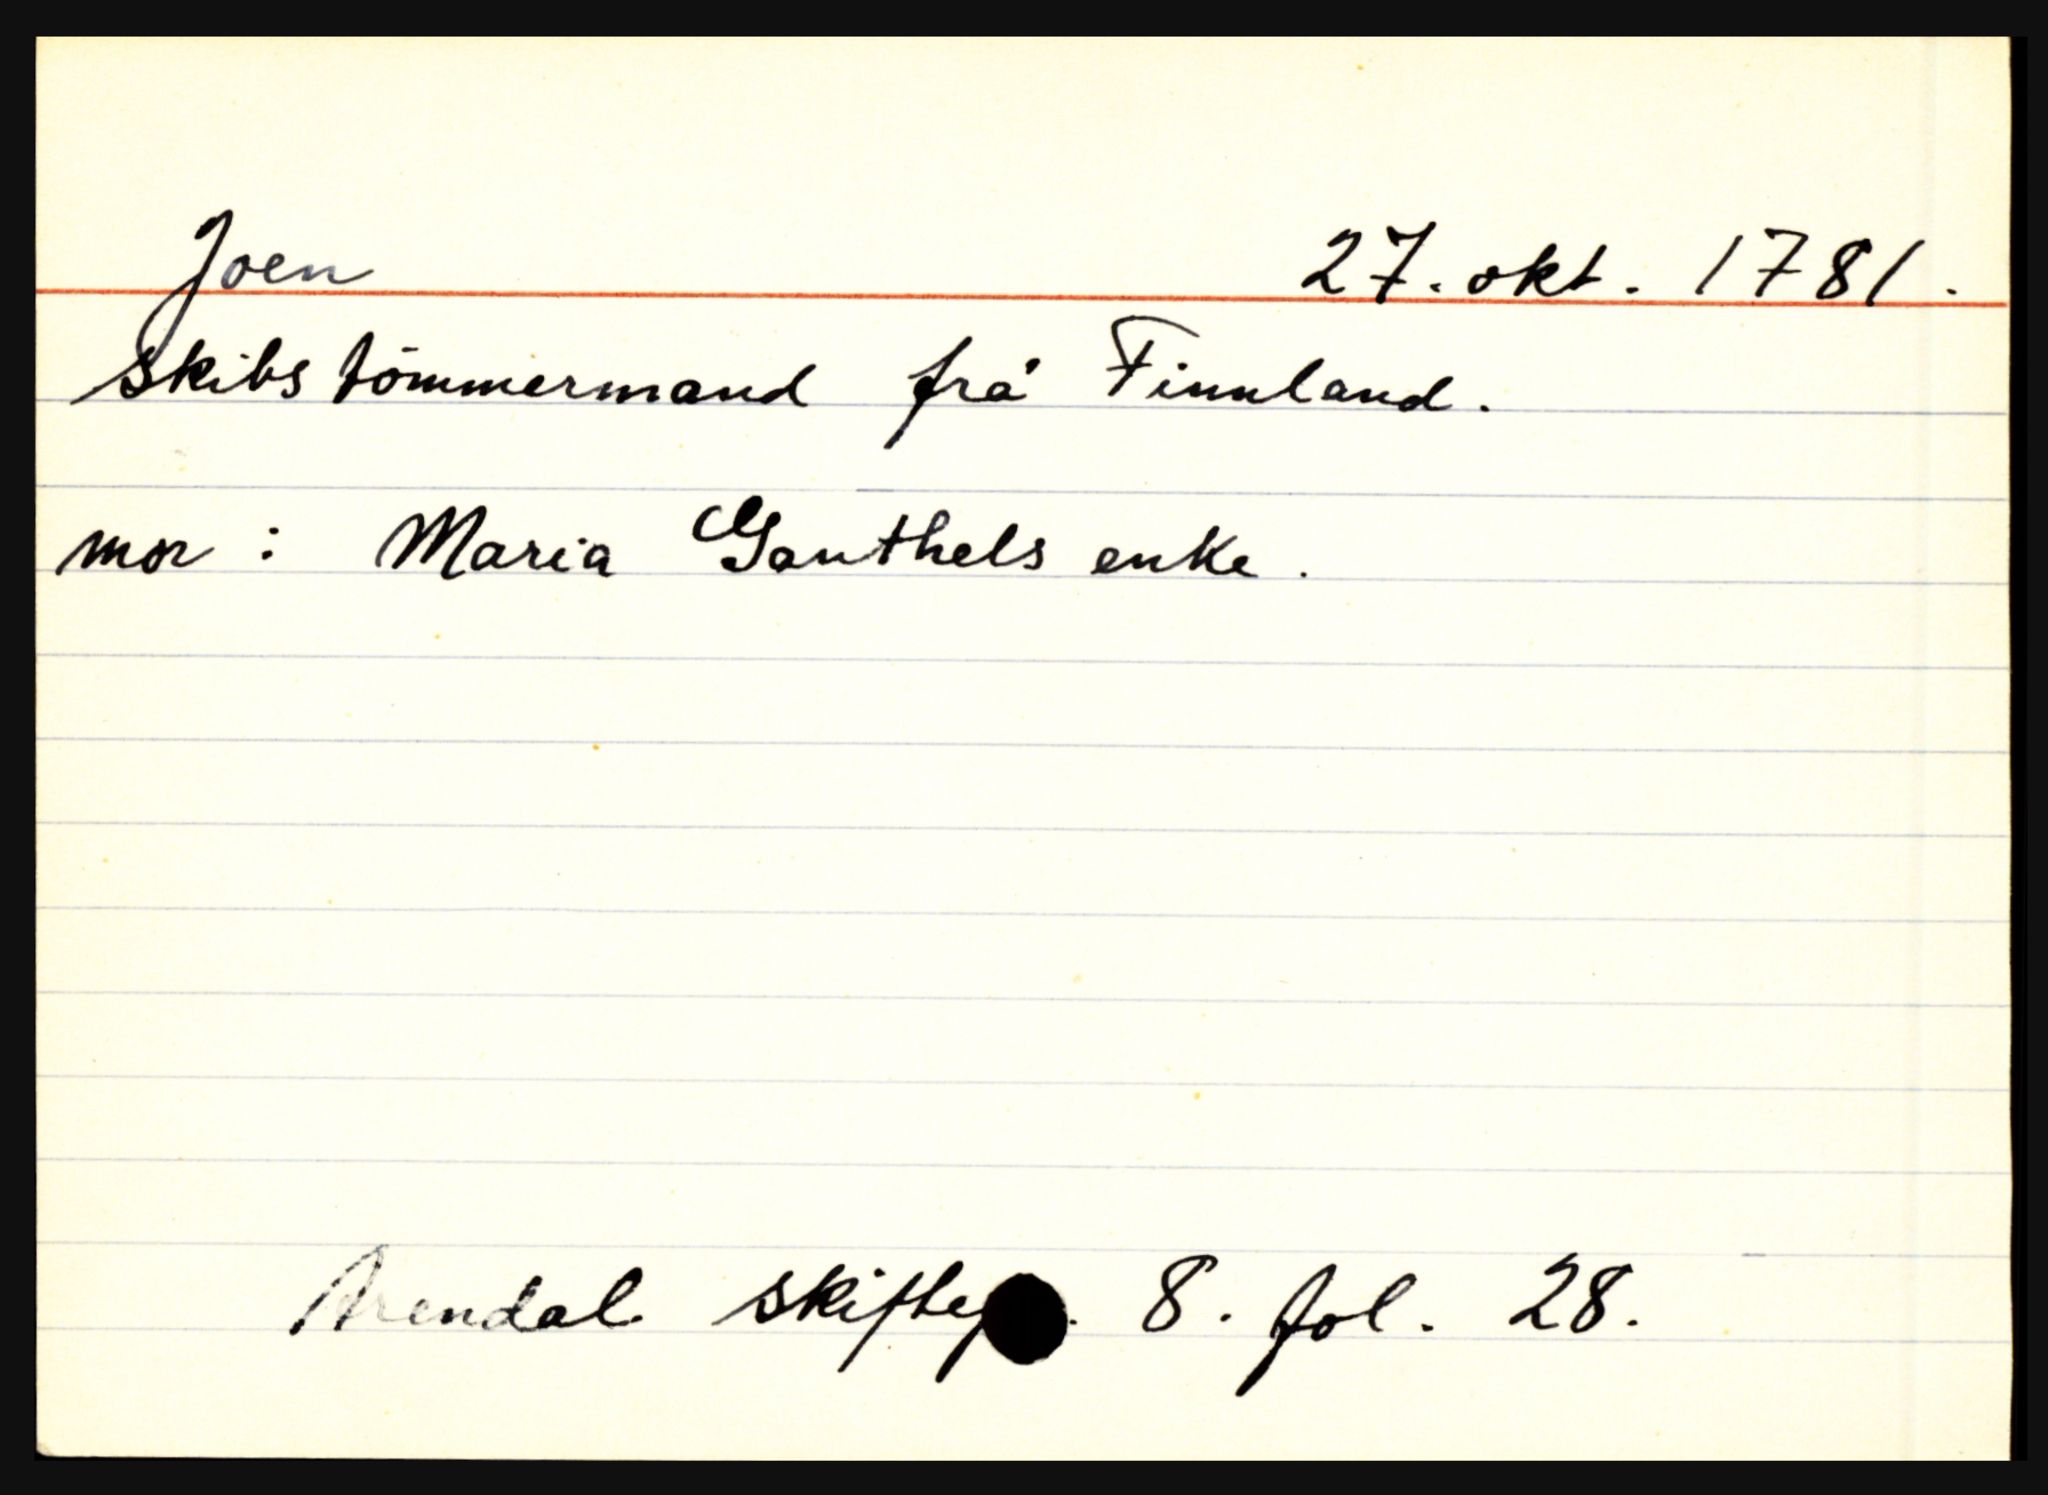 Joen 27. okt. 1781.
skibstömmermand frå Finnland.
mor : Maria Gauthels enke.
Arendal skiftep. 8. fol. 28.